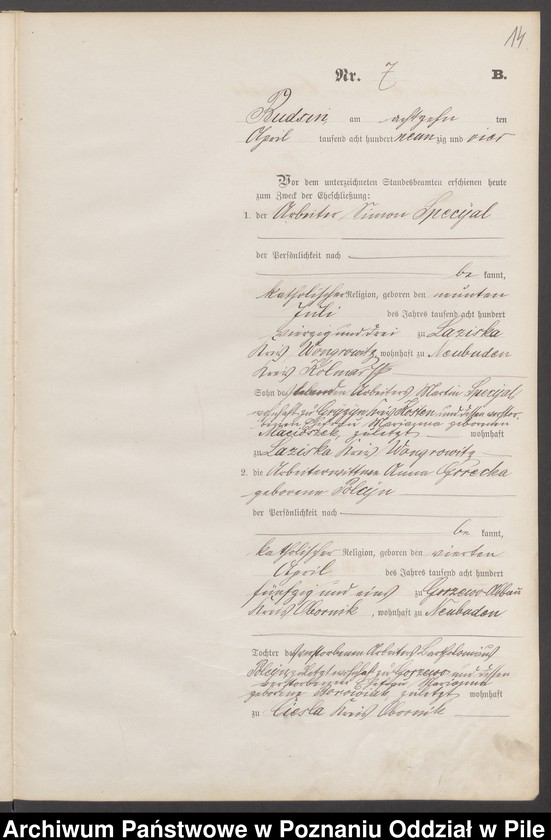 14
Nr. 7 B.
Rudsin, am achtzehn ten
April tausend acht hundert neunzig und vier
Vor dem unterzeichneten Standesbeamten erschienen heute
zum Zweck der Eheschließung:
1. der Arbeiter Simon Specyal
der Persönlichkeit nach
be kannt,
katholischer Religion, geboren den neunten
Juli des Jahres tausend acht hundert
vierzig und drei zu Laziska
Kreis Wongrowitz, wohnhaft zu Neubuden
Kreis Kolmar
Sohn des lebenden Arbeiters Martin Specyal
wohnhaft zu Kreis Kosten und dessen verstor-
benen Ehefrau Marianna geborenen
zuletzt wohnhaft
zu Laziska Kreis Wongrowitz
2. die Arbeiterwittwe Anna
geborene Poleyn
der Persönlichkeit nach
be kannt,
katholischer Religion, geboren den vierten
April des Jahres tausend acht hundert
fünfzig und eins zu Gorzewo Abbau
Kreis Obornik, wohnhaft zu Neubuden
Tochter des verstorbenen Arbeiters Bartholomäus
Poleyn zuletzt wohnhaft zu Gorzewo und dessen
verstorbenen Ehefrau Marianna
geborene zuletzt wohnhaft
zu Ciesla Kreis Obornik
Archiwum Państwowe w Poznaniu Oddział w Pile